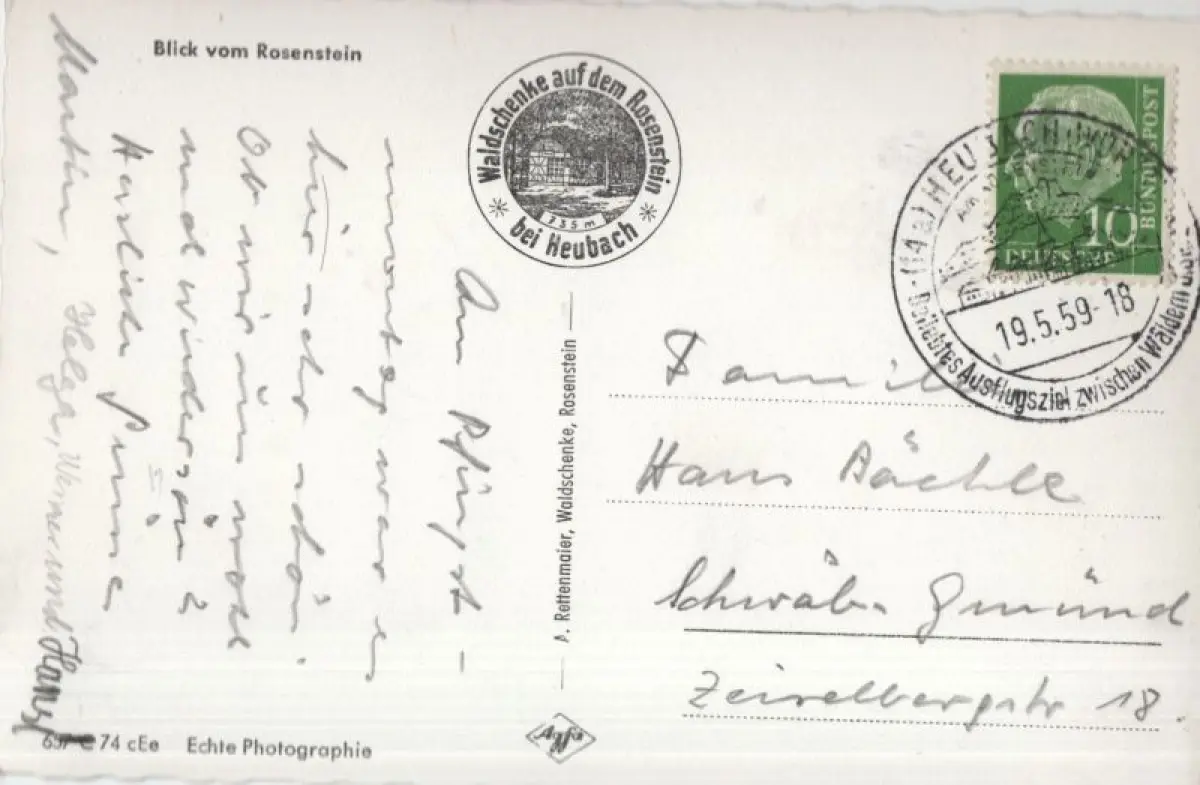 Blick vom Rosenstein
Waldschenke auf dem Rosenstein
735 m
bei Heubach
Am Pfingst-
montag war es
hier sehr schön.
Ob wir uns wohl
mal wiedersehn?
Herzliche Grüße
Martin, Helga, Werner und Hans
A. Rettenmaier, Waldschenke, Rosenstein
BUNDESPOST
10
DEUTSCHE
(14a) HEUBACH (WÜRTT
19.5.59-18
Beliebtes Ausflugsziel zwischen Wäldern
Familie
Hans Bächle
Schwäb. Gmünd
Zeiselbergstr 18.
74 cEe Echte Photographie
Agfa